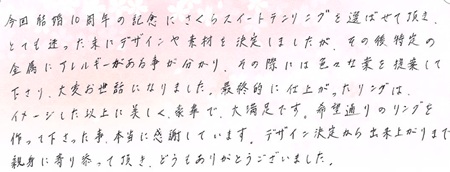 今回結婚10周年の記念にさくらスイートテンリングを選ばせて頂き、
とても迷った末にデザインや素材を決定しましたが、その後特定の
金属にアレルギーがある事が分かり、その際には色々な案を提案して
下さり、大変お世話になりました。最終的に仕上がったリングは、
イメージした以上に美しく、豪華で、大満足です。希望通りのリングを
作って下さった事、本当に感謝しています。デザイン決定から出来上がりまで
親身に寄り添って頂き、どうもありがとうございました。